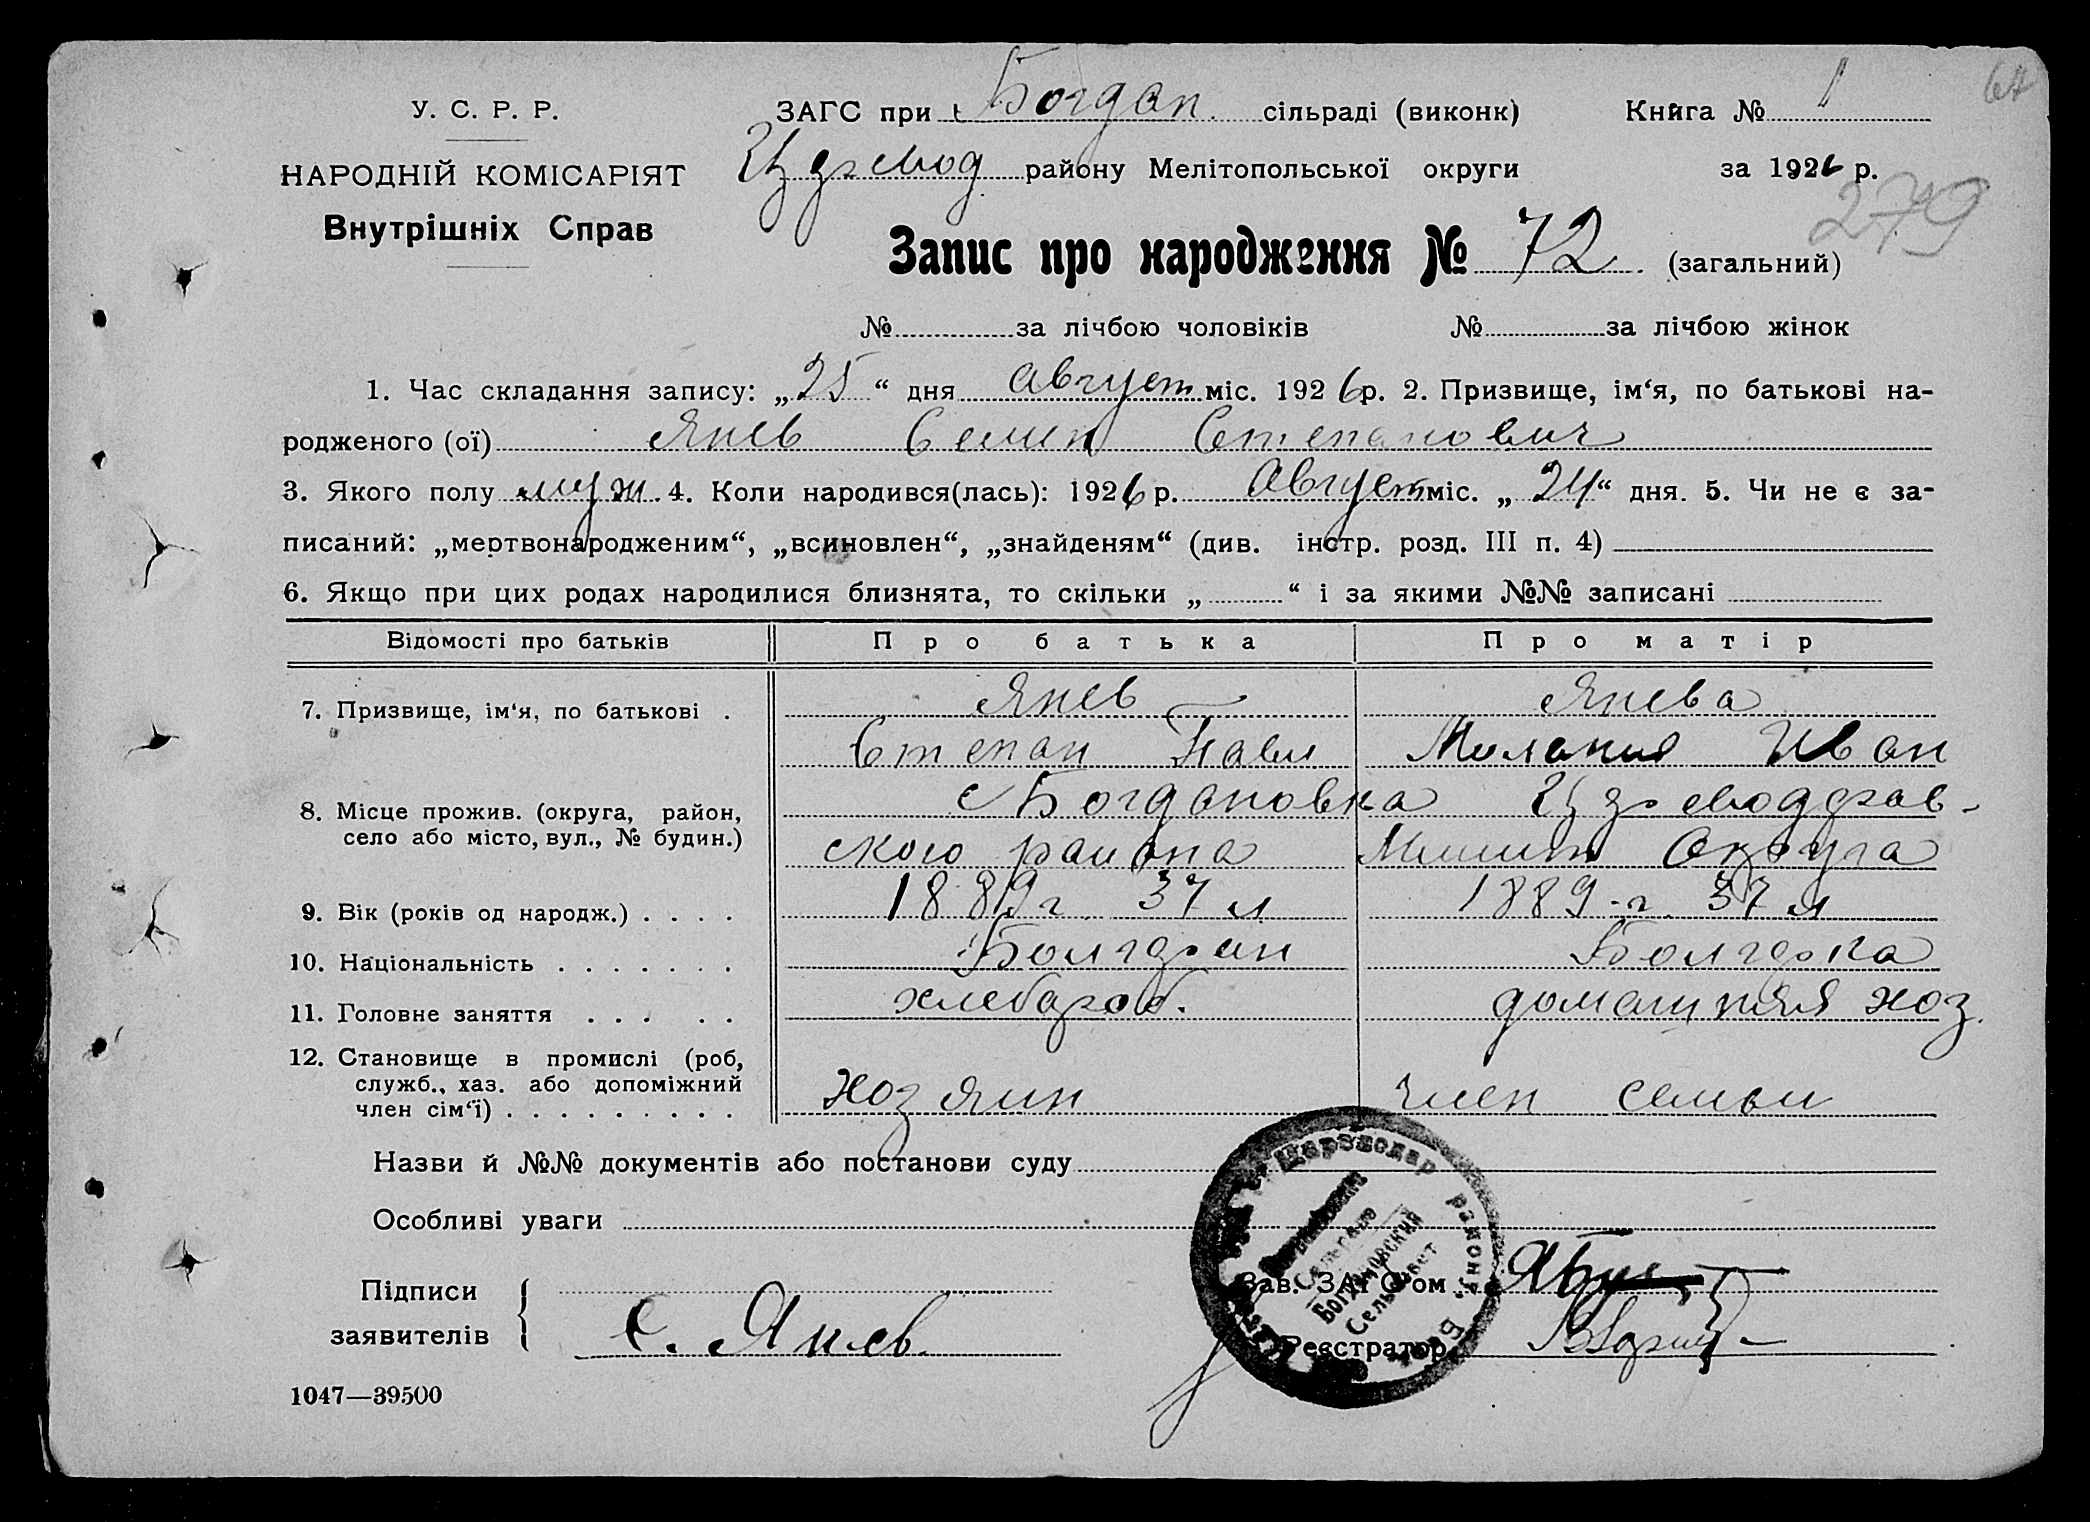 64
У. С. Р. Р.
НАРОДНІЙ КОМІСАРІЯТ
Внутрішніх Справ
ЗАГС при Богдан. сільраді (виконк)
Книга № 1
Цареводар району Мелітопольської округи
за 1926 р.
279
Запис про народження № 72 (загальний)
№ за лічбою чоловіків № за лічбою жінок
1. Час складання запису: „25“ дня август міс. 1926 р. 2. Призвище, ім‘я, по батькові на-
родженого (ої) Янев Семен Степанович
3. Якого полу муж. 4. Коли народився(лась): 1926 р. Август міс. „24“ дня. 5. Чи не є за-
писаний: „мертвонародженим“, „всиновлен“, „знайденям“ (див. інстр. розд. III п. 4)
6. Якщо при цих родах народилися близнята, то скільки „ “ і за якими №№ записані
Відомості про батьків Про батька Про матір
7. Призвище, ім‘я, по батькові . Янев Янева
Степан Павл Мелания Иван
8. Місце прожив. (округа, район, село або місто, вул., № будин.) с Богдановка
ского района Округа
9. Вік (років од народж.) . . . . 1889 г. 37 л 1889 г. 37 л
10. Національність . . . . . . . Болгарин Болгарка
11. Головне заняття . . . . . хлебароб. домашняя хоз.
12. Становище в промислі (роб, служб., хаз. або допоміжний член сім‘ї) . . . . . . . . . хозяин член семьи
Назви й №№ документів або постанови суду
Особливі уваги
Підписи
заявителів
С. Янев.
Зав. ЗАГСом
Реєстратор
Богдановский
Сельсовет
району
1047—39500